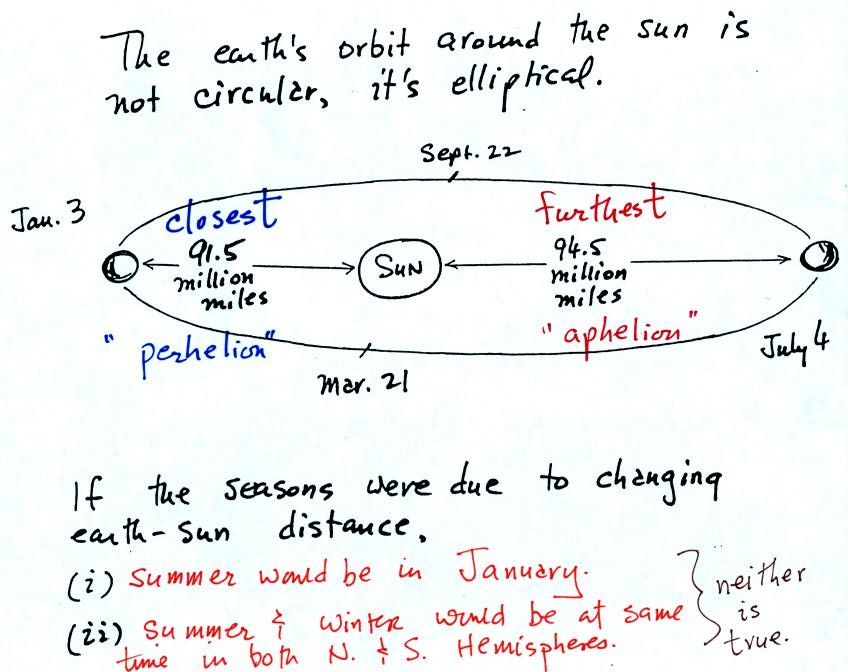 The earth's orbit around the sun is
not circular, it's elliptical.
Sept. 22
Jan. 3
closest
furthest
91.5
million
miles
SUN
94.5
million
miles
"perhelion"
"aphelion"
July 4
Mar. 21
If the seasons were due to changing
earth-sun distance,
(i) Summer would be in January.
(ii) Summer & winter would be at same
time in both N. & S. Hemispheres.
neither
is
true.